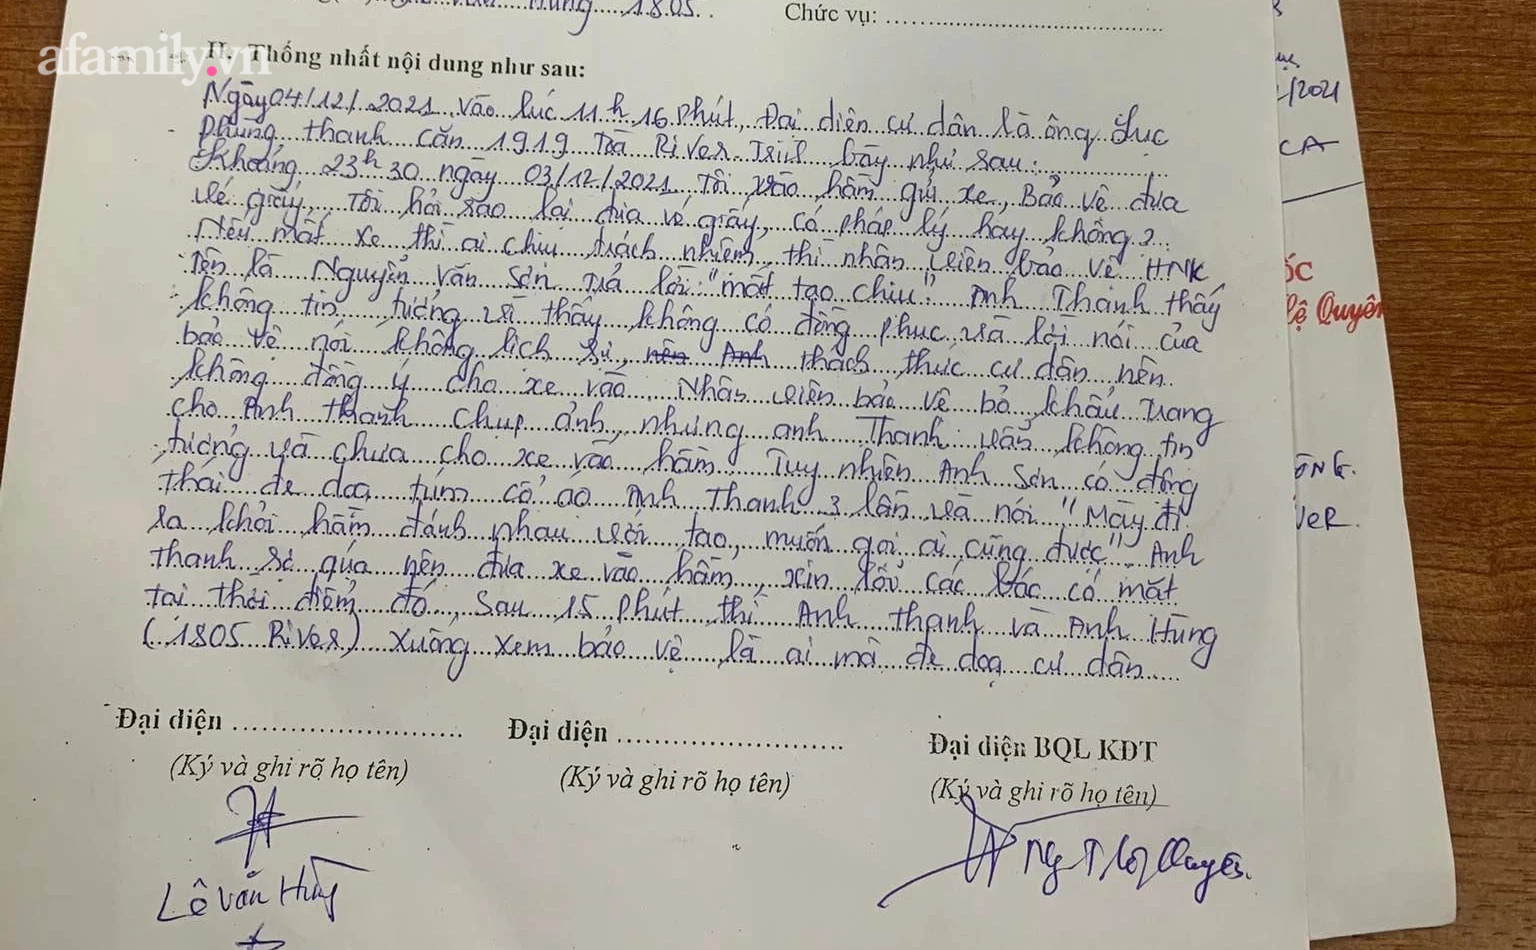 Hùng 1805.
Chức vụ:
afamily.vn
II. Thống nhất nội dung như sau:
Ngày 04/12/2021 vào lúc 11h 16 phút, Đại diện cư dân là ông Lục
Phùng thanh căn 1919 Toà River Trình bày như sau:
Khoảng 23h30 ngày 03/12/2021 Tôi vào hầm gửi xe, Bảo vệ đưa
vé giấy, Tôi hỏi sao lại đưa vé giấy, có pháp lý hay không?
Nếu mất xe thì ai chịu trách nhiệm, thì nhân viên bảo vệ HNK
Tên là Nguyễn Văn Sơn trả lời: "mất tao chịu". Anh Thanh thấy
không tin tưởng vì thấy không có đồng phục và lời nói của
bảo vệ nói không lịch sự, nên Anh thách thức cư dân nên
không đồng ý cho xe vào. Nhân viên bảo vệ bỏ khẩu trang
cho Anh thanh chụp ảnh, nhưng anh Thanh vẫn không tin
tưởng và chưa cho xe vào hầm Tuy nhiên Anh Sơn có động
thái đe doạ túm cổ áo Anh Thanh 3 lần và nói "Mày đi
ra khỏi hầm đánh nhau với tao, muốn gọi ai cũng được" Anh
thanh sợ quá nên đưa xe vào hầm, xin lỗi các bác có mặt
tại thời điểm đó, Sau 15 phút thì Anh thanh và Anh Hùng
(1805 River) xuống xem bảo vệ là ai mà đe doạ cư dân
Đại diện
(Ký và ghi rõ họ tên)
Lê Văn Hùng
Đại diện
(Ký và ghi rõ họ tên)
Đại diện BQL KĐT
(Ký và ghi rõ họ tên)
Quyên
/2021
CA
ỐC
Lệ Quyên
ÔNG.
VER